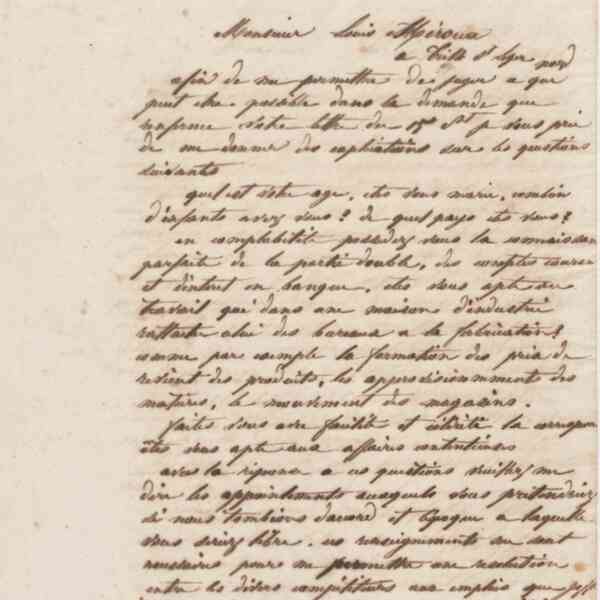 Monsieur Louis
a
afin de me permettre de juger a que
peut etre possible dans la demande que
renferme votre lettre du 15 je vous prie
de me donner des explications sur les questions
suivants
quel est votre age, etes vous marie, combien
d'enfants avez vous? de quel pays etes vous?
en complabilité possedez vous la connaissan
parfaite de la partie double, des comptes courants
et d'interet en banque, etes vous apte au
travail qui dans une maison d'industrie
rattache celui des bureaux a la fabrication?
comme par exemple la formation des prix de
revient des produits, les approvisionnements des
matieres, le mouvement des magasins.
faites vous avec facilité et célérité la correspon
êtes vous apte aux affaires contentieuses
avec la reponse a ces questions veuillez me
dire les appointements auxquels vous pretendriez
si nous tombions d'accord et l'epoque a laquelle
vous seriez libre. ces renseignements me sont
necessaires pour me permettre une resolution
entre les divers compétiteurs aux emplois que